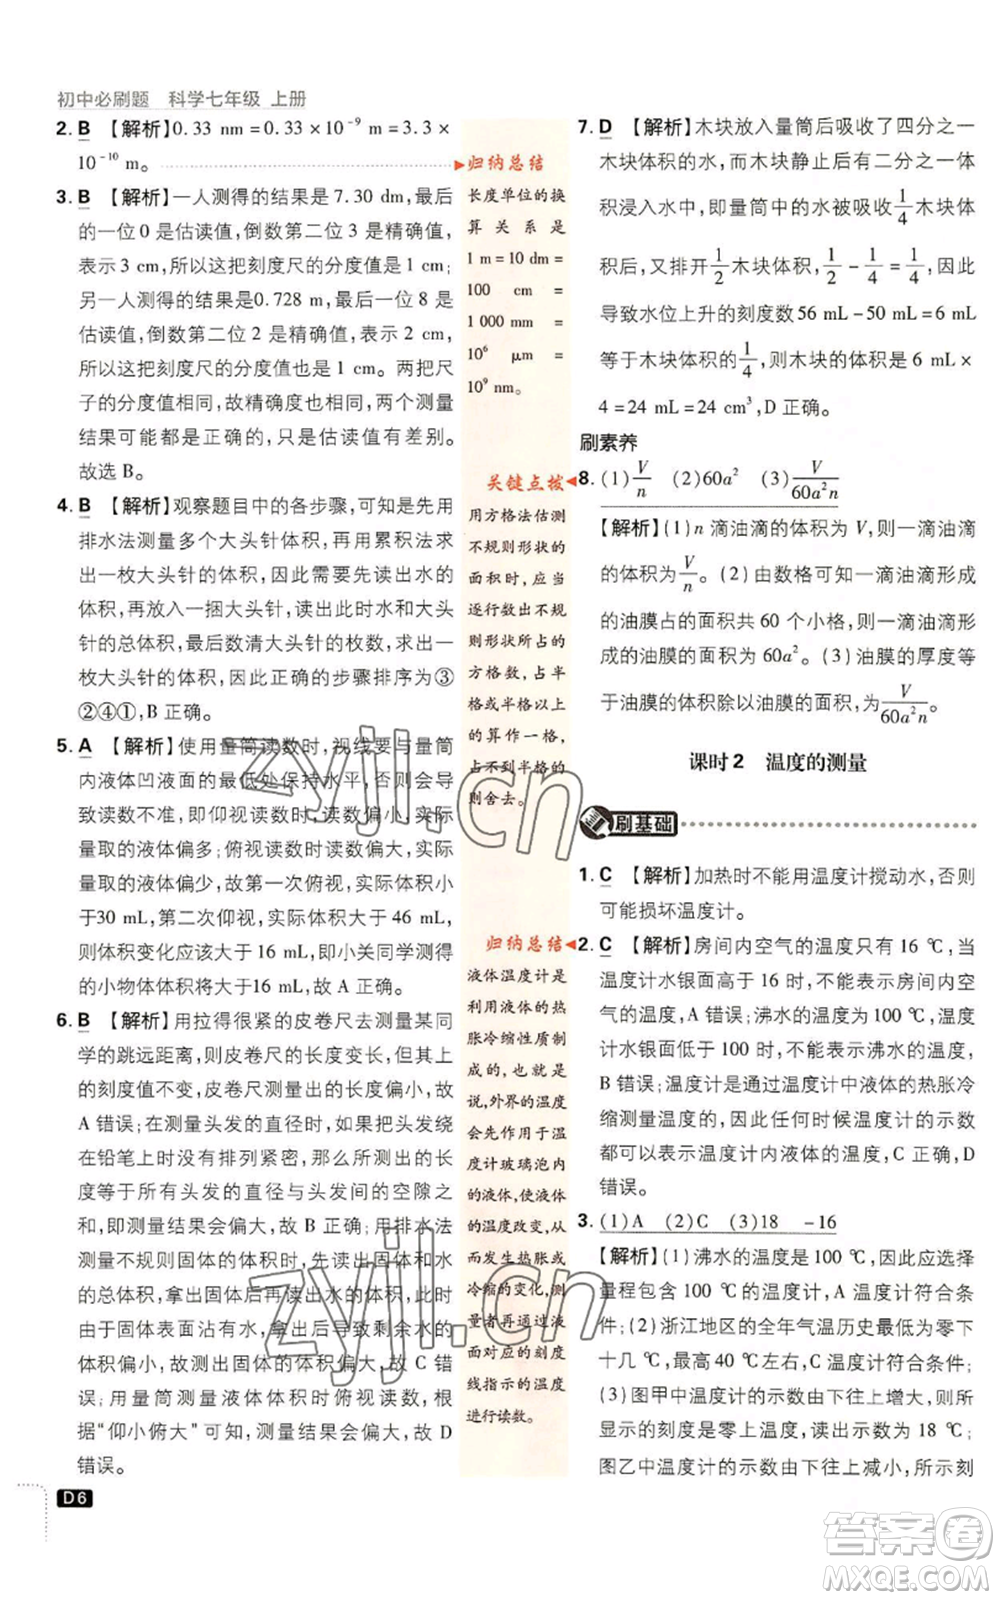 初中必刷题 科学七年级 上册
2. B 【解析】0.33 nm＝0.33×10⁻⁹ m＝3.3×
10⁻¹⁰ m。
3. B 【解析】一人测得的结果是7.30 dm,最后
的一位0是估读值,倒数第二位3是精确值,
表示3 cm,所以这把刻度尺的分度值是1 cm;
另一人测得的结果是0.728 m,最后一位8是
估读值,倒数第二位2是精确值,表示2 cm,
所以这把刻度尺的分度值也是1 cm。两把尺
子的分度值相同,故精确度也相同,两个测量
结果可能都是正确的,只是估读值有差别。
故选B。
4. B 【解析】观察题目中的各步骤,可知是使用
排水法测量多个大头针体积,再用累积法求
出一枚大头针的体积,因此需要先读出水的
体积,再放入一捆大头针,读出此时水和大头
针的总体积,最后数清大头针的枚数,求出一
枚大头针的体积,因此正确的步骤排序为③
②④①,B正确。
5. A 【解析】使用量筒读数时,视线要与量筒
内液体凹液面的最低处保持水平,否则会导
致读数不准,即仰视读数时读数偏小,实际
量取的液体偏多;俯视读数时读数偏大,实际
量取的液体偏少,故第一次俯视,实际体积小
于30 mL,第二次仰视,实际体积大于46 mL,
则体积变化应该大于16 mL,即小关同学测得
的小物体体积大于16 mL,故A正确。
6. B 【解析】用拉得很紧的皮卷尺去测量某同
学的跳远距离,则皮卷尺的长度变长,而对应
的刻度值不变,皮卷尺测量出的长度偏小,故
A错误;在测量头发的直径时,多根头发绕
在铅笔上时没有排列紧密,那么所测出的长
度等于所有头发的直径与头发间的空隙之
和,即测量结果会偏大,故B正确;用排水法
测量不规则固体的体积时,先读出固体和水
的总体积,拿出固体后再读出水的体积,拿出
固体时表面沾有水,会导致剩余水的体积偏
小,故测出固体的体积偏大,故C错
误;用量筒测量液体体积时俯视读数,根
据“仰小俯大”可知,读数会偏大,故D
错误。
归纳总结
长度单位的换
算关系是
1 m＝10 dm＝
100 cm＝
1 000 mm＝
10⁶ μm＝
10⁹ nm。
关键点拨
用方格法估测
不规则形状的
面积时,应当
逐行数出不规
则形状所占的
方格数,占半
格或半格以上
的算作一格,
占不到半格的
则舍去。
归纳总结
液体温度计是
利用液体的热
胀冷缩性质制
成的,也就是
说,外界的温度
会先作用于温
度计玻璃泡内
的液体,使液体
的温度改变,从
而发生热胀或
冷缩的变化,测
量者再通过液
面对应的刻度
线指示的温度
进行读数。
7. D 【解析】木块放入量筒后吸收了四分之一
木块体积的水,而木块静止后有二分之一体
积浸入水中,即量筒中的水被吸收1/4木块体
积后,又排开1/2木块体积,1/2－1/4＝1/4,因此
导致水位上升的刻度数56 mL－50 mL＝6 mL
等于木块体积的1/4,则木块的体积是6 mL×
4＝24 mL＝24 cm³,D正确。
刷素养
8. (1)V/n (2)60a² (3)V/60a²n
【解析】(1)n滴油滴的体积为V,则一滴油滴
的体积为V/n。(2)由数格可知一滴油滴形成
的油膜占的面积共60个小格,则一滴油滴形
成的油膜的面积为60a²。(3)油膜的厚度等
于油膜的体积除以油膜的面积,为V/60a²n。
课时2 温度的测量
刷基础
1. C 【解析】加热时不能用温度计搅动水,否则
可能损坏温度计。
2. C 【解析】房间内空气的温度只有16 ℃,当
温度计水银面高于16时,不能表示房间内空
气的温度,A错误;沸水的温度为100 ℃,温度
计水银面低于100时,不能表示沸水的温度,
B错误;温度计是通过温度计中液体的热胀冷
缩测量温度的,任何时候温度计的示数
都只能表示温度计内液体的温度,C正确,D
错误。
3. (1)A (2)C (3)18 －16
【解析】(1)沸水的温度是100 ℃,因此应选择
量程包含100 ℃的温度计,A温度计符合条
件;(2)浙江地区的全年气温历史最低为零下
十几℃,最高40 ℃左右,C温度计符合条件;
(3)图甲中温度计的示数由下往上增大,则所
显示的刻度为零上,读数为18 ℃;
图乙中温度计的示数由下往上减小,所示刻
D6
zyjl.cn
zyjl.cn
答案卷
MXQE.COM